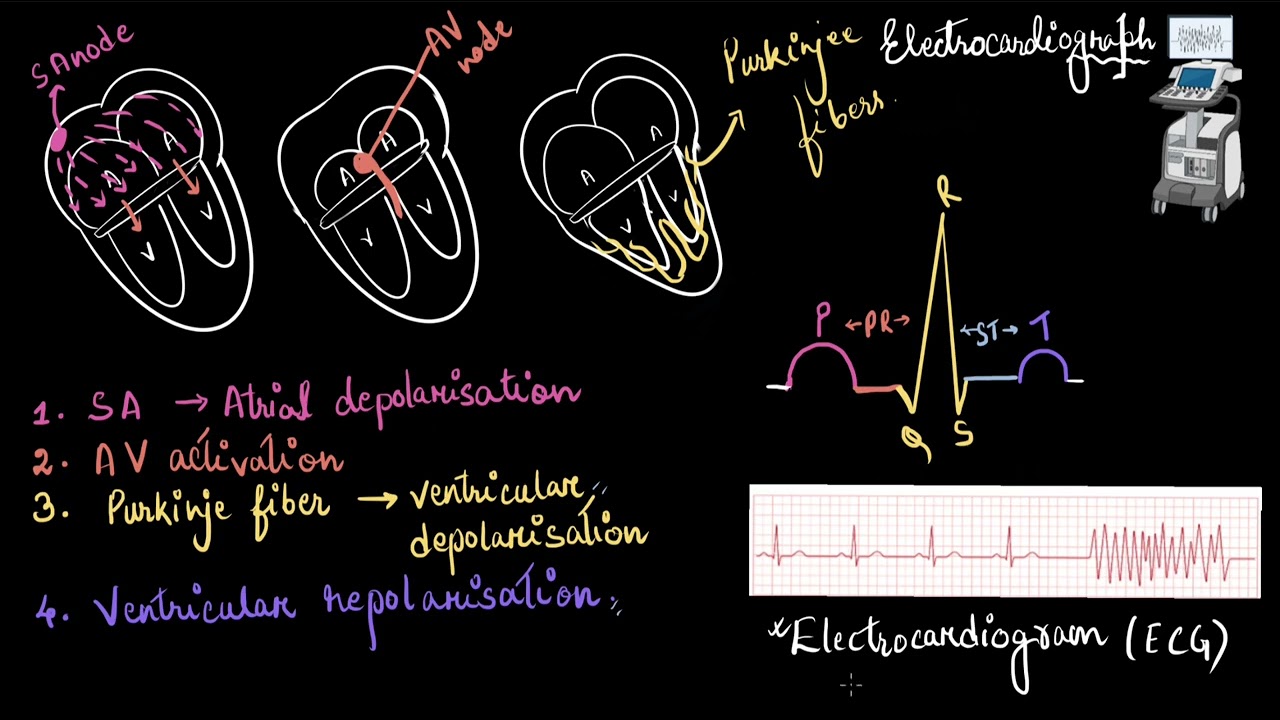 SA node
A
A
V
V
AV
node
A
A
V
V
Purkinjee
fibers.
A
A
V
V
Electrocardiograph
R
P
←PR→
←ST→
T
Q
S
1. SA → Atrial depolarisation
2. AV activation
3. Purkinje fiber → ventricular
depolarisation
4. Ventricular repolarisation.
*Electrocardiogram (ECG)